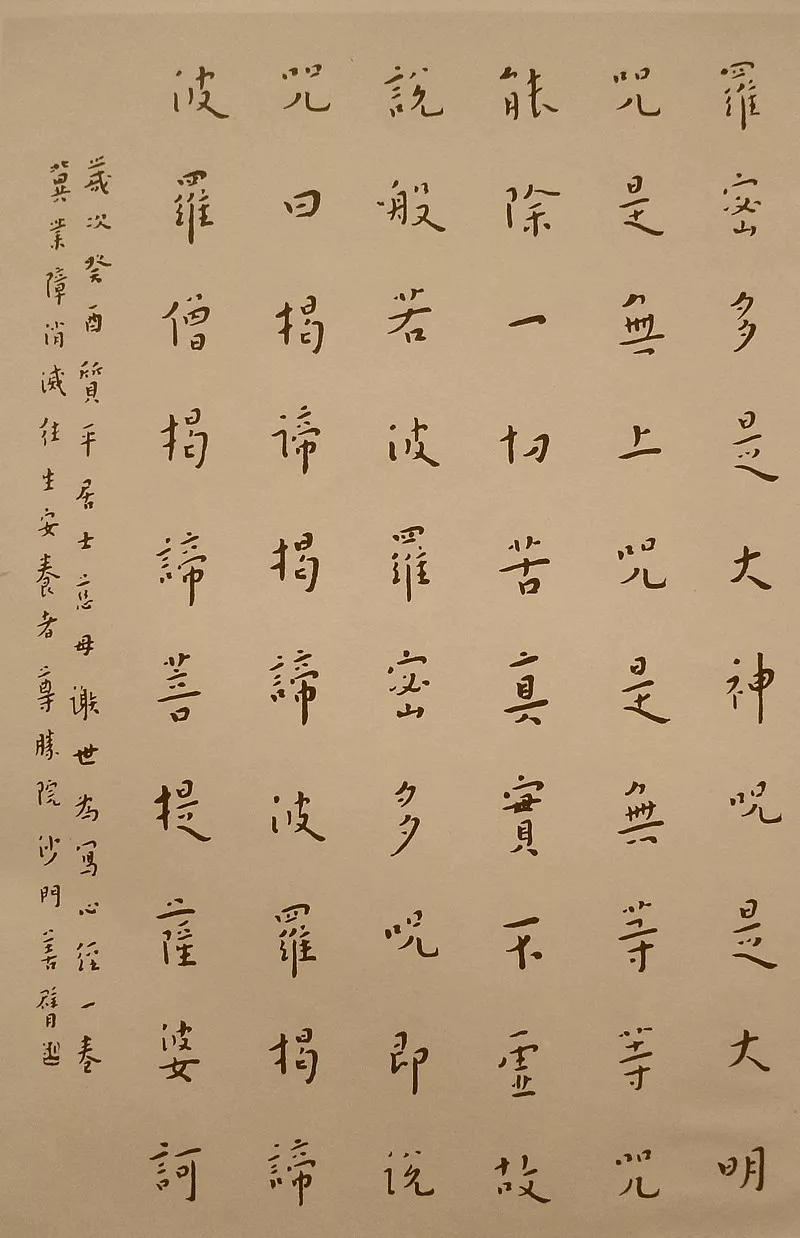 羅密多是大神呪是大明
呪是無上呪是無等等呪
能除一切苦真實不虛故
說般若波羅密多呪即说
呪曰揭諦揭諦波羅揭諦
波羅僧揭諦菩提薩婆訶
歲次癸酉質平居士亡母謝世為寫心經一卷
冀業障消滅往生安養者尊勝院沙門善臂